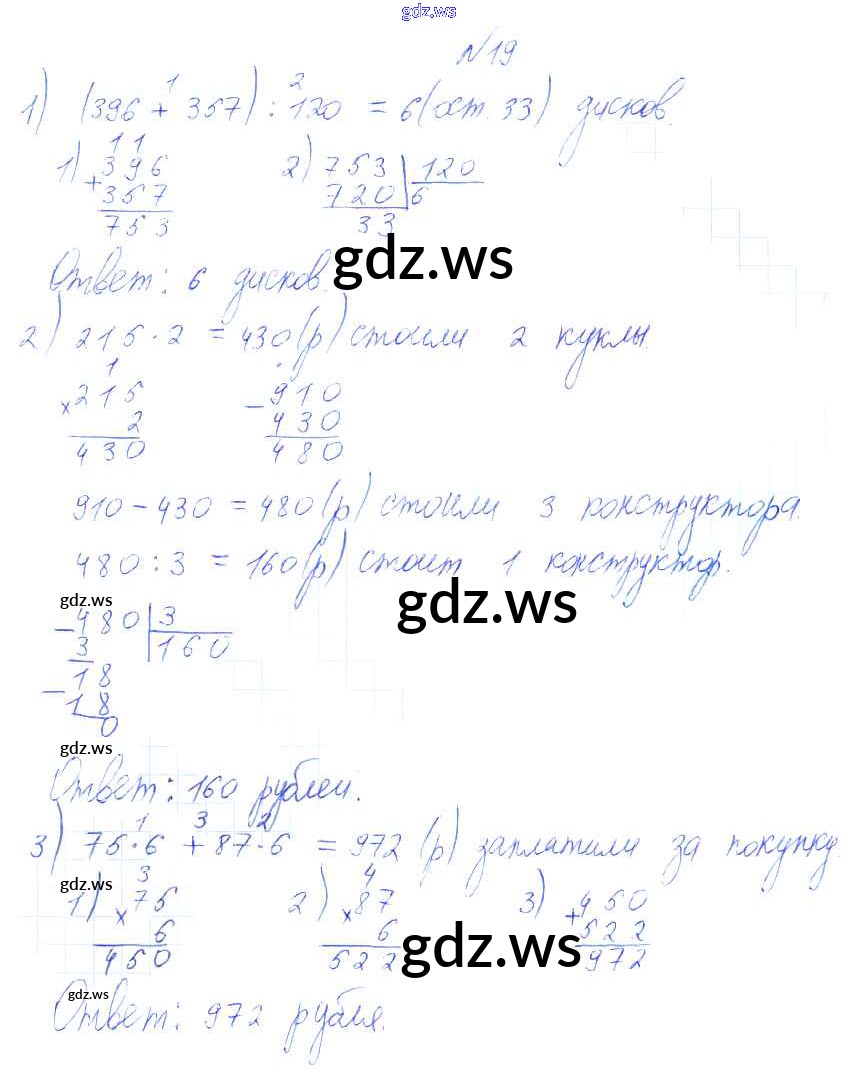 gdz.ws
№19
1) (396 + 357) : 120 = 6 (ост. 33) дисков.
1) 396 + 357 = 753 2) 753 | 120
720 6
33
gdz.ws
Ответ: 6 дисков.
2) 215 · 2 = 430 (р) стоили 2 куклы.
× 215 - 910
2 430
430 480
910 - 430 = 480 (р) стоили 3 конструктора.
480 : 3 = 160 (р) стоит 1 конструктор.
gdz.ws
gdz.ws
- 480 | 3
3 160
- 18
18
0
gdz.ws
Ответ: 160 рублей.
3) 75 · 6 + 87 · 6 = 972 (р) заплатили за покупку
gdz.ws
1) × 75 2) × 87 3) + 450
6 6 522
450 522 972
gdz.ws
gdz.ws
Ответ: 972 рубля.